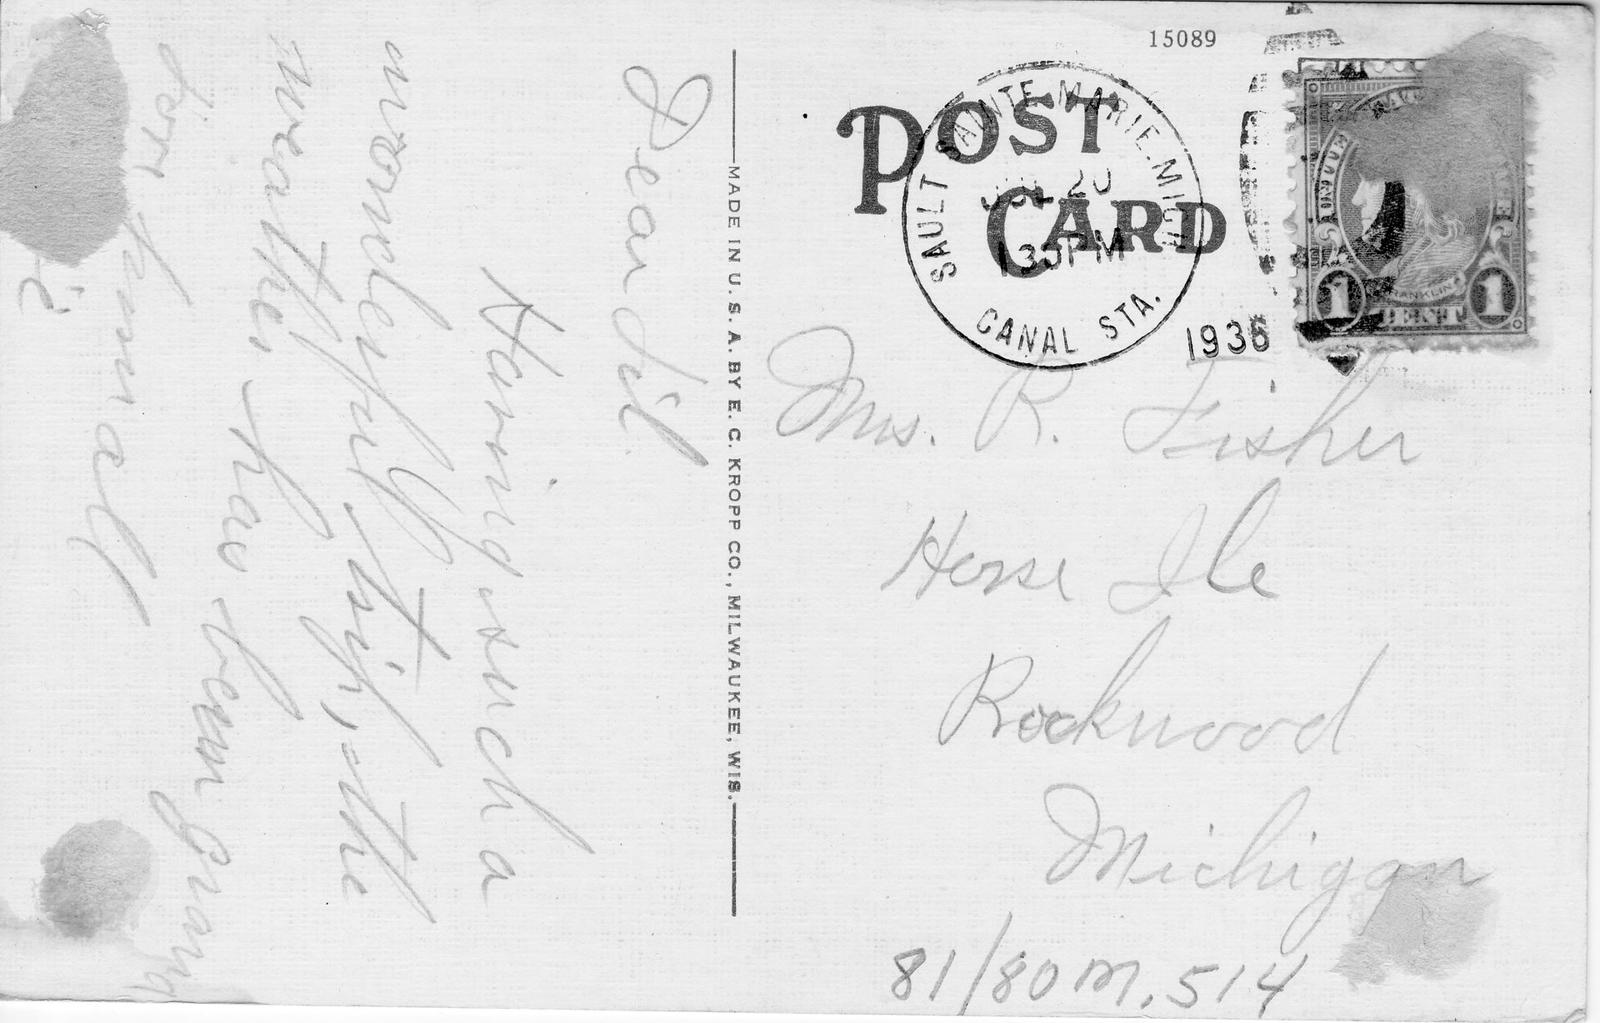 Dear Sil.
Having such a
wonderful trip, the
weather has been grand
for
small
MADE IN U. S. A. BY E. C. KROPP CO., MILWAUKEE, WIS.
15089
POST
CARD
SAULT SAINTE MARIE, MICH
JUL 20
130PM
CANAL STA.
1936
FRANKLIN
1 CENT 1
Mrs. R. Fisher
Horse Ile
Rockwood
Michigan
81/80M.514